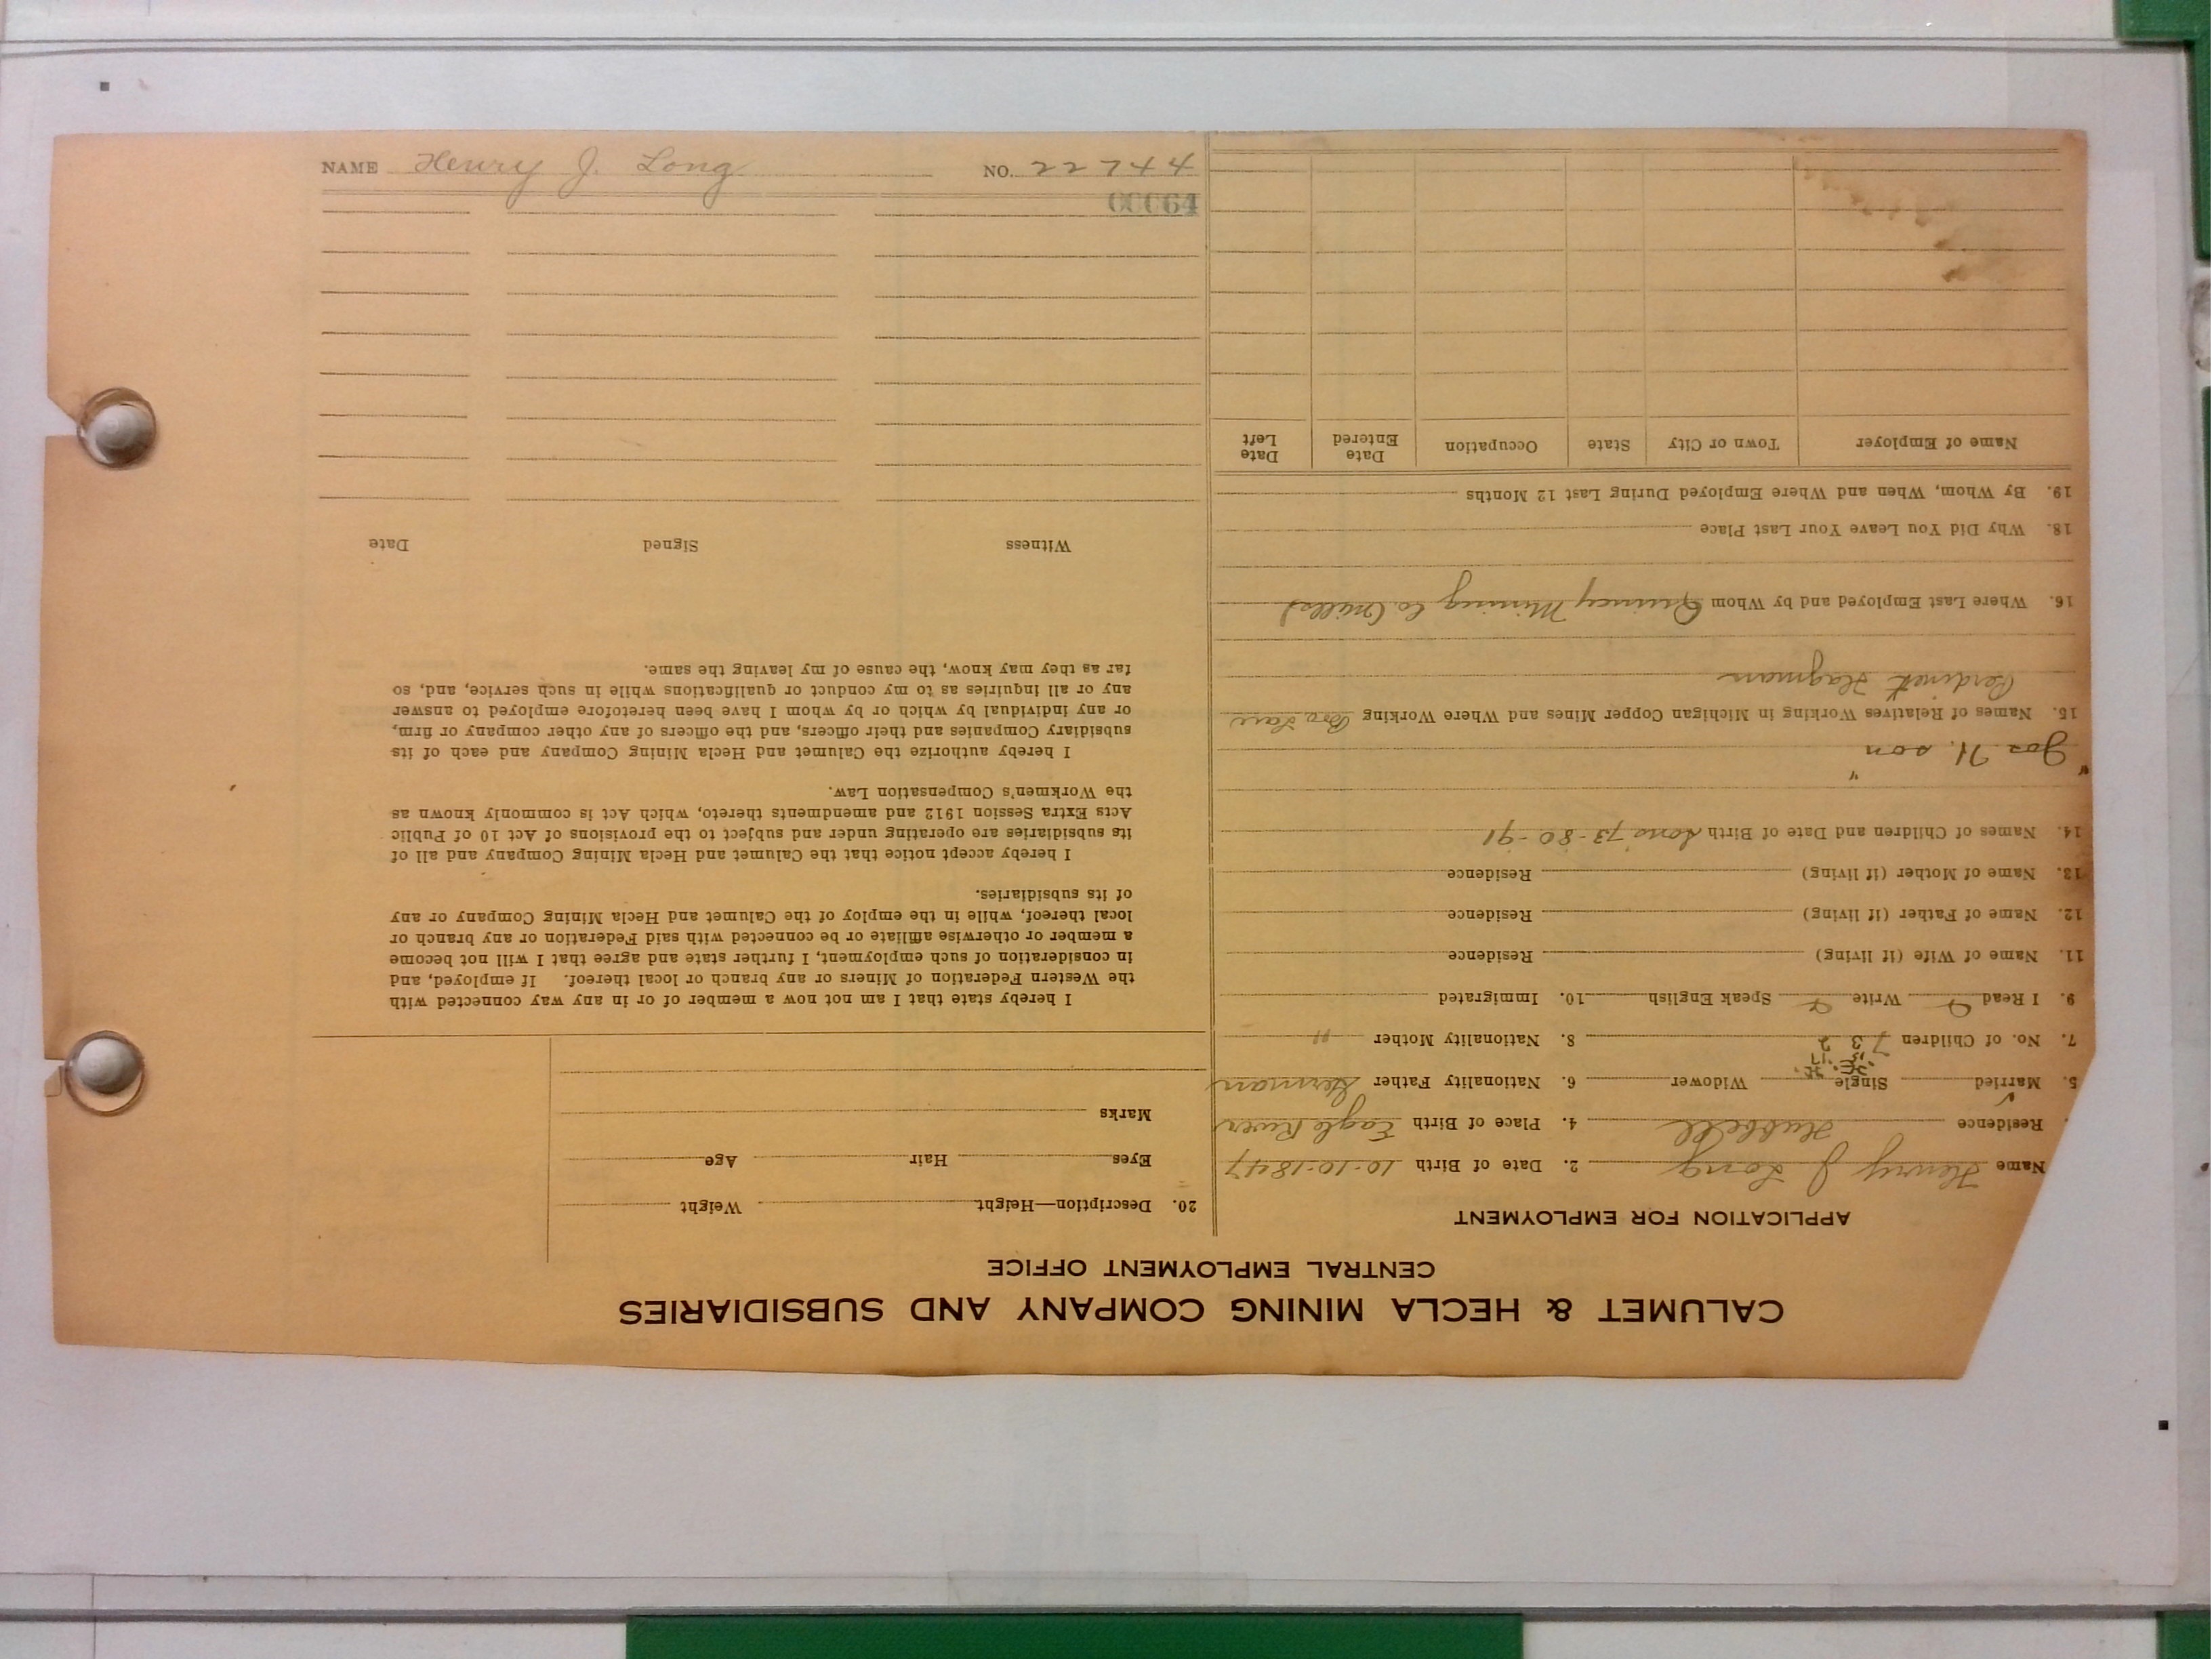 CALUMET & HECLA MINING COMPANY AND SUBSIDIARIES
CENTRAL EMPLOYMENT OFFICE
APPLICATION FOR EMPLOYMENT
Name Henry J Long 2. Date of Birth 10-10-1847
Residence Hubbell 4. Place of Birth Eagle River
5. Married Single Widower 6. Nationality Father German
7. No. of Children 7 3 2 8. Nationality Mother "
9. I Read Write Speak English 10. Immigrated
11. Name of Wife (if living) Residence
12. Name of Father (if living) Residence
13. Name of Mother (if living) Residence
14. Names of Children and Date of Birth Sons 73-80-91
Jos H. son
15. Names of Relatives Working in Michigan Copper Mines and Where Working
Hagman
16. Where Last Employed and by Whom Quincy Mining Co (mills)
18. Why Did You Leave Your Last Place
19. By Whom, When and Where Employed During Last 12 Months
Name of Employer Town or City State Occupation Date Entered Date Left
20. Description—Height Weight
Eyes Hair Age
Marks
I hereby state that I am not now a member of or in any way connected with
the Western Federation of Miners or any branch or local thereof. If employed, and
in consideration of such employment, I further state and agree that I will not become
a member or otherwise affiliate or be connected with said Federation or any branch or
local thereof, while in the employ of the Calumet and Hecla Mining Company or any
of its subsidiaries.
I hereby accept notice that the Calumet and Hecla Mining Company and all of
its subsidiaries are operating under and subject to the provisions of Act 10 of Public
Acts Extra Session 1912 and amendments thereto, which Act is commonly known as
the Workmen's Compensation Law.
I hereby authorize the Calumet and Hecla Mining Company and each of its
subsidiary Companies and their officers, and the officers of any other company or firm,
or any individual by which or by whom I have been heretofore employed to answer
any or all inquiries as to my conduct or qualifications while in such service, and, so
far as they may know, the cause of my leaving the same.
Witness Signed Date
NAME Henry J. Long NO. 22744